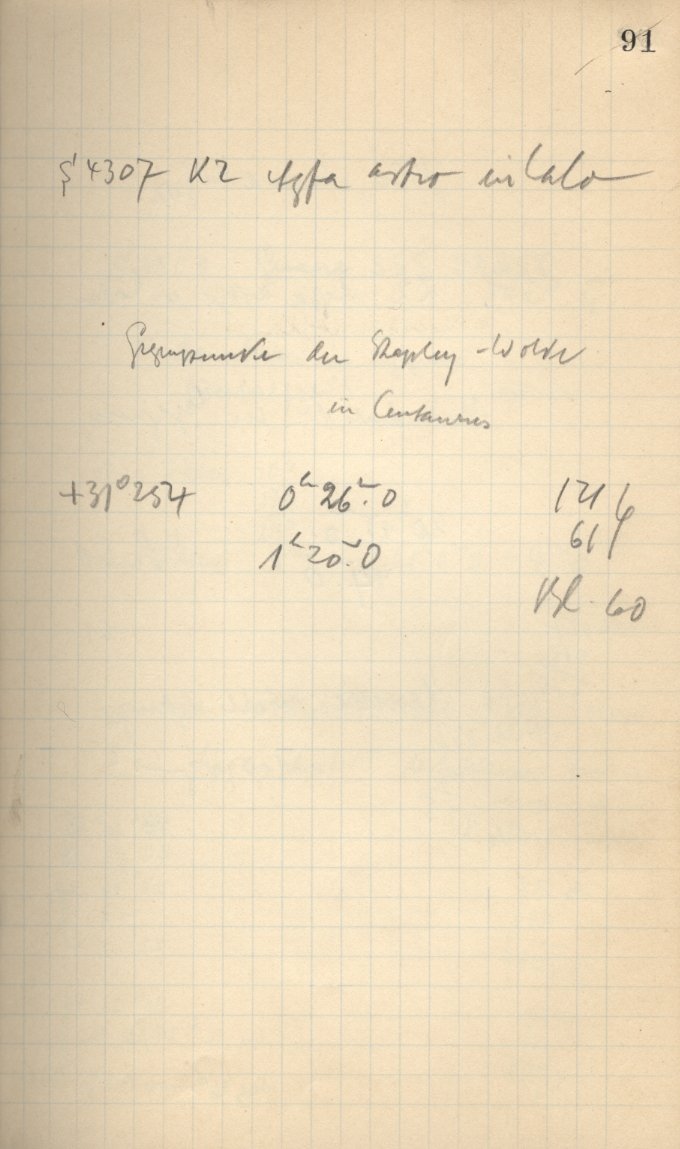 91
S 4307 K2 Agfa astro
Gegenpunkt der Shapley-Wolke
in Centaurus
+31° 254 0ʰ 26ᵐ.0 121
1ʰ 20ᵐ.0 61
Bl. 60